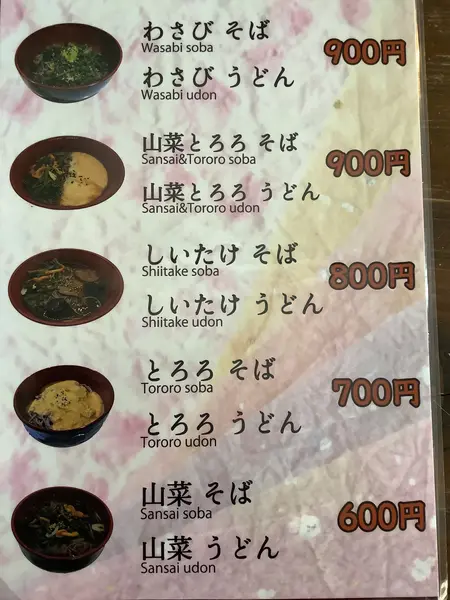 わさび そば
Wasabi soba
900円
わさび うどん
Wasabi udon
山菜とろろ そば
Sansai&Tororo soba
900円
山菜とろろ うどん
Sansai&Tororo udon
しいたけ そば
Shiitake soba
800円
しいたけ うどん
Shiitake udon
とろろ そば
Tororo soba
700円
とろろ うどん
Tororo udon
山菜 そば
Sansai soba
600円
山菜 うどん
Sansai udon